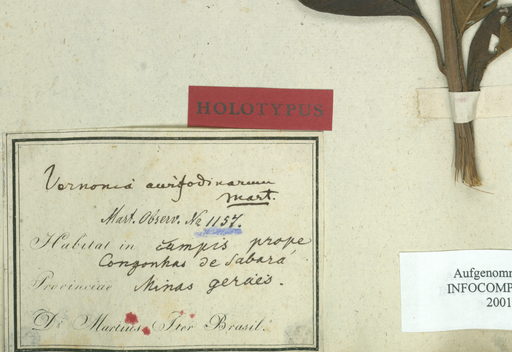 HOLOTYPUS
Vernonia aurifodinarum
Mart.
Mart. Observ. No 1157.
Habitat in campis prope
Congonhas de Sabará
Provinciae Minas geraës.
Dr. Martius, Iter Brasil.
Aufgenomm
INFOCOMP
2001